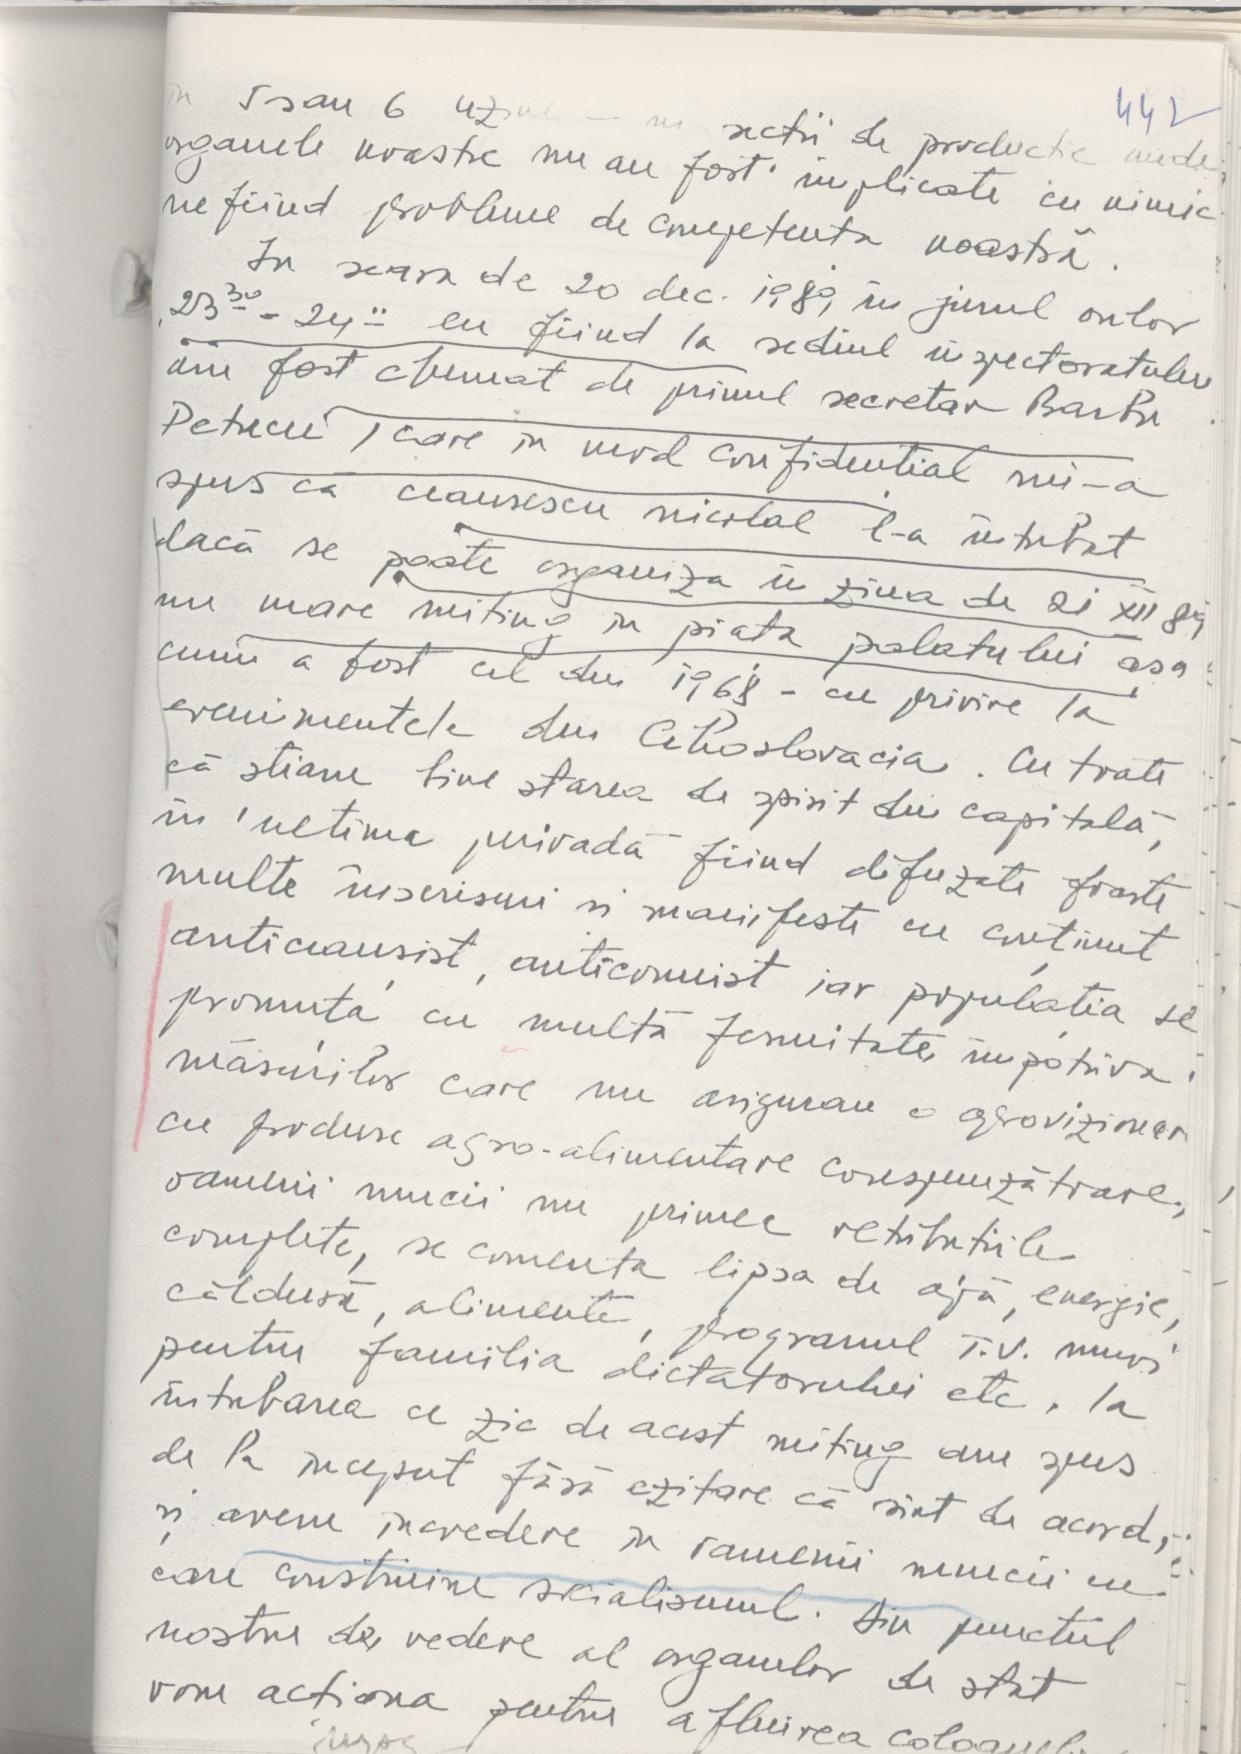 442
în 5 sau 6 uzine - în secții de producție unde
organele noastre nu au fost implicate cu nimic
nefiind probleme de competența noastră.
In seara de 20 dec. 1989, în jurul orelor
23³⁰ - 24" eu fiind la sediul inspectoratului
am fost chemat de primul secretar Barbu
Petrucu, care în mod confidential mi-a
spus că ceausescu nicolae l-a întrebat
dacă se poate organiza în ziua de 21 XII 89,
un mare miting în piata palatului așa
cum a fost cel din 1968 - cu privire la
evenimentele din Cehoslovacia. Cu toate
că stiam bine starea de spirit din capitală,
în ultima perioadă fiind difuzate foarte
multe înscrisuri si manifeste cu conținut
anticeausist, anticomunist iar populația se
pronunța cu multă fermitate împotriva
măsurilor care nu asigurau o aprovizionare
cu produse agro-alimentare corespunzătoare,
oamenii muncii nu primec retributiile
complete, se comenta lipsa de apă, energie,
căldură, alimente, programul T.V. numai
pentru familia dictatorului etc. la
intrebarea ce zic de acest miting am spus
de la început fără ezitare că sint de acord,
și avem incredere în oamenii muncii cu
care construim socialismul. din punctul
nostru de vedere al organelor de stat
vom actiona pentru afluirea coloanelor